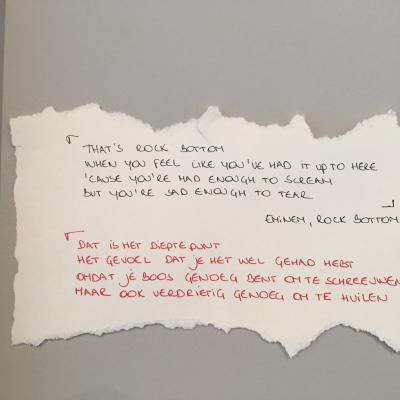 「 THAT'S ROCK BOTTOM
WHEN YOU FEEL LIKE YOU'VE HAD IT UP TO HERE
'CAUSE YOU'RE MAD ENOUGH TO SCREAM
BUT YOU'RE SAD ENOUGH TO TEAR 」
EMINEM, ROCK BOTTOM
「 DAT IS HET DIEPTEPUNT
HET GEVOEL DAT JE HET WEL GEHAD HEBT
OMDAT JE BOOS GENOEG BENT OM TE SCHREEUWEN
MAAR OOK VERDRIETIG GENOEG OM TE HUILEN